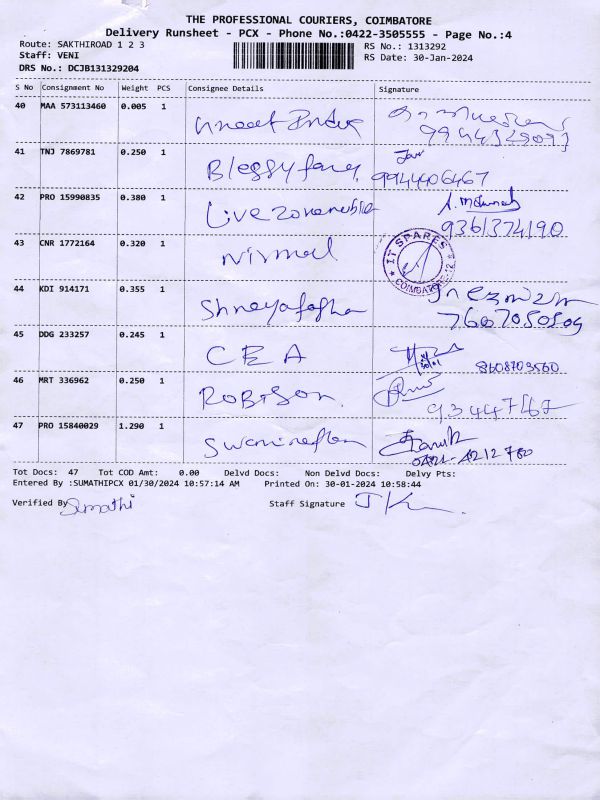 THE PROFESSIONAL COURIERS, COIMBATORE
Delivery Runsheet - PCX - Phone No.:0422-3505555 - Page No.:4
Route: SAKTHIROAD 1 2 3 RS No.: 1313292
Staff: VENI RS Date: 30-Jan-2024
DRS No.: DCJB131329204
S No Consignment No Weight PCS Consignee Details Signature
40 MAA 573113460 0.005 1
41 TNJ 7869781 0.250 1 Blessy
9944406467
42 PRO 15990835 0.380 1 Livezone
9361374190
43 CNR 1772164 0.320 1 Nirmal
IT SPARES
COIMBATORE-12
44 KDI 914171 0.355 1
7667050509
45 DDG 233257 0.245 1 CEA
8608703560
46 MRT 336962 0.250 1 Robinson
47 PRO 15840029 1.290 1
0421-4212780
Tot Docs: 47 Tot COD Amt: 0.00 Delvd Docs: Non Delvd Docs: Delvy Pts:
Entered By :SUMATHIPCX 01/30/2024 10:57:14 AM Printed On: 30-01-2024 10:58:44
Verified By Sumathi Staff Signature